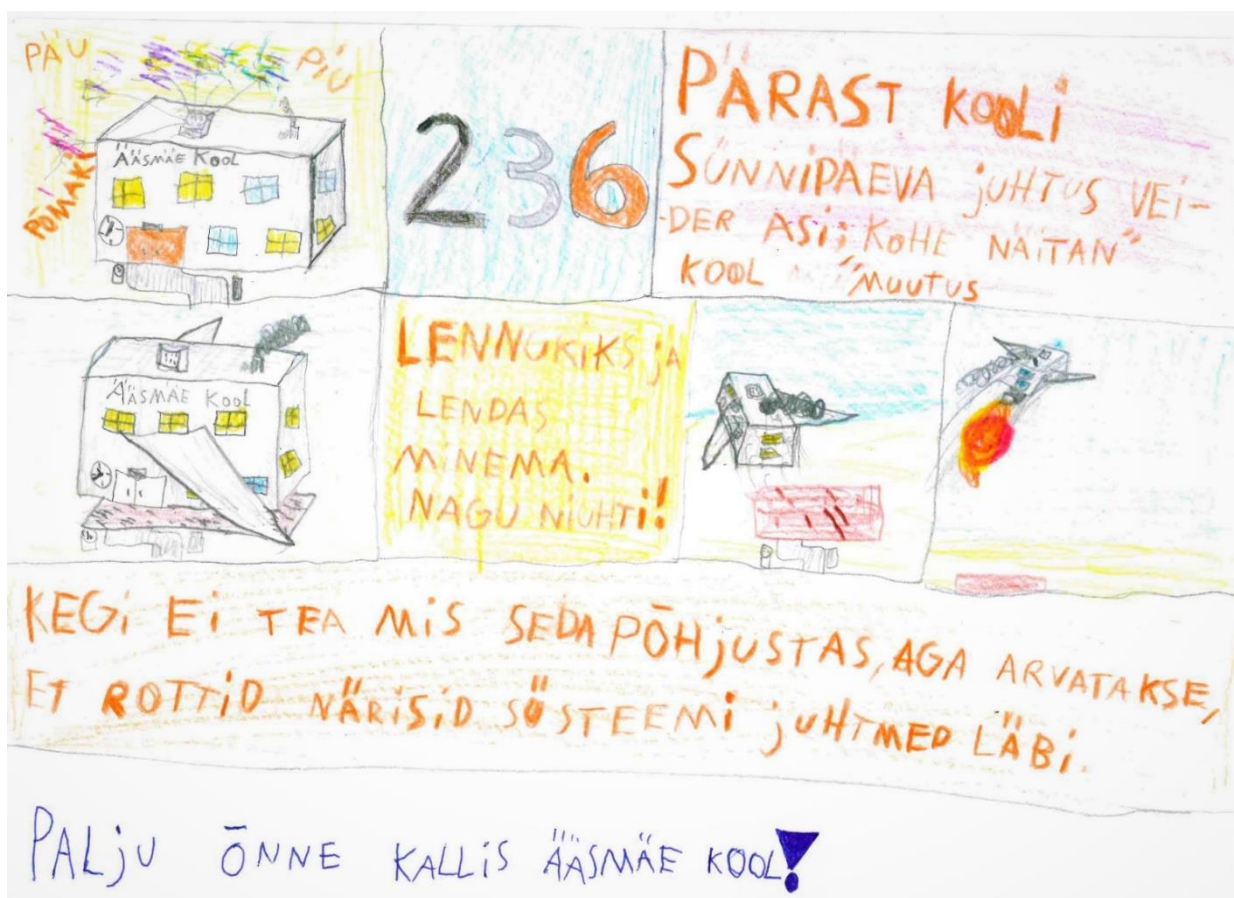 PÄU
PIU
PÕMAKI
ÄÄSMÄE KOOL
236
PÄRAST KOOLI
SÜNNIPÄEVA JUHTUS VEI-
DER ASI; KOHE NÄITAN"
KOOL "MUUTUS
ÄÄSMÄE KOOL
LENNUKIKS JA
LENDAS
MINEMA.
NAGU NIUHTI!
KEGI EI TEA MIS SEDA PÕHJUSTAS, AGA ARVATAKSE,
ET ROTTID NÄRISID SÜSTEEMI JUHTMED LÄBI.
PALJU ÕNNE KALLIS ÄÄSMÄE KOOL!